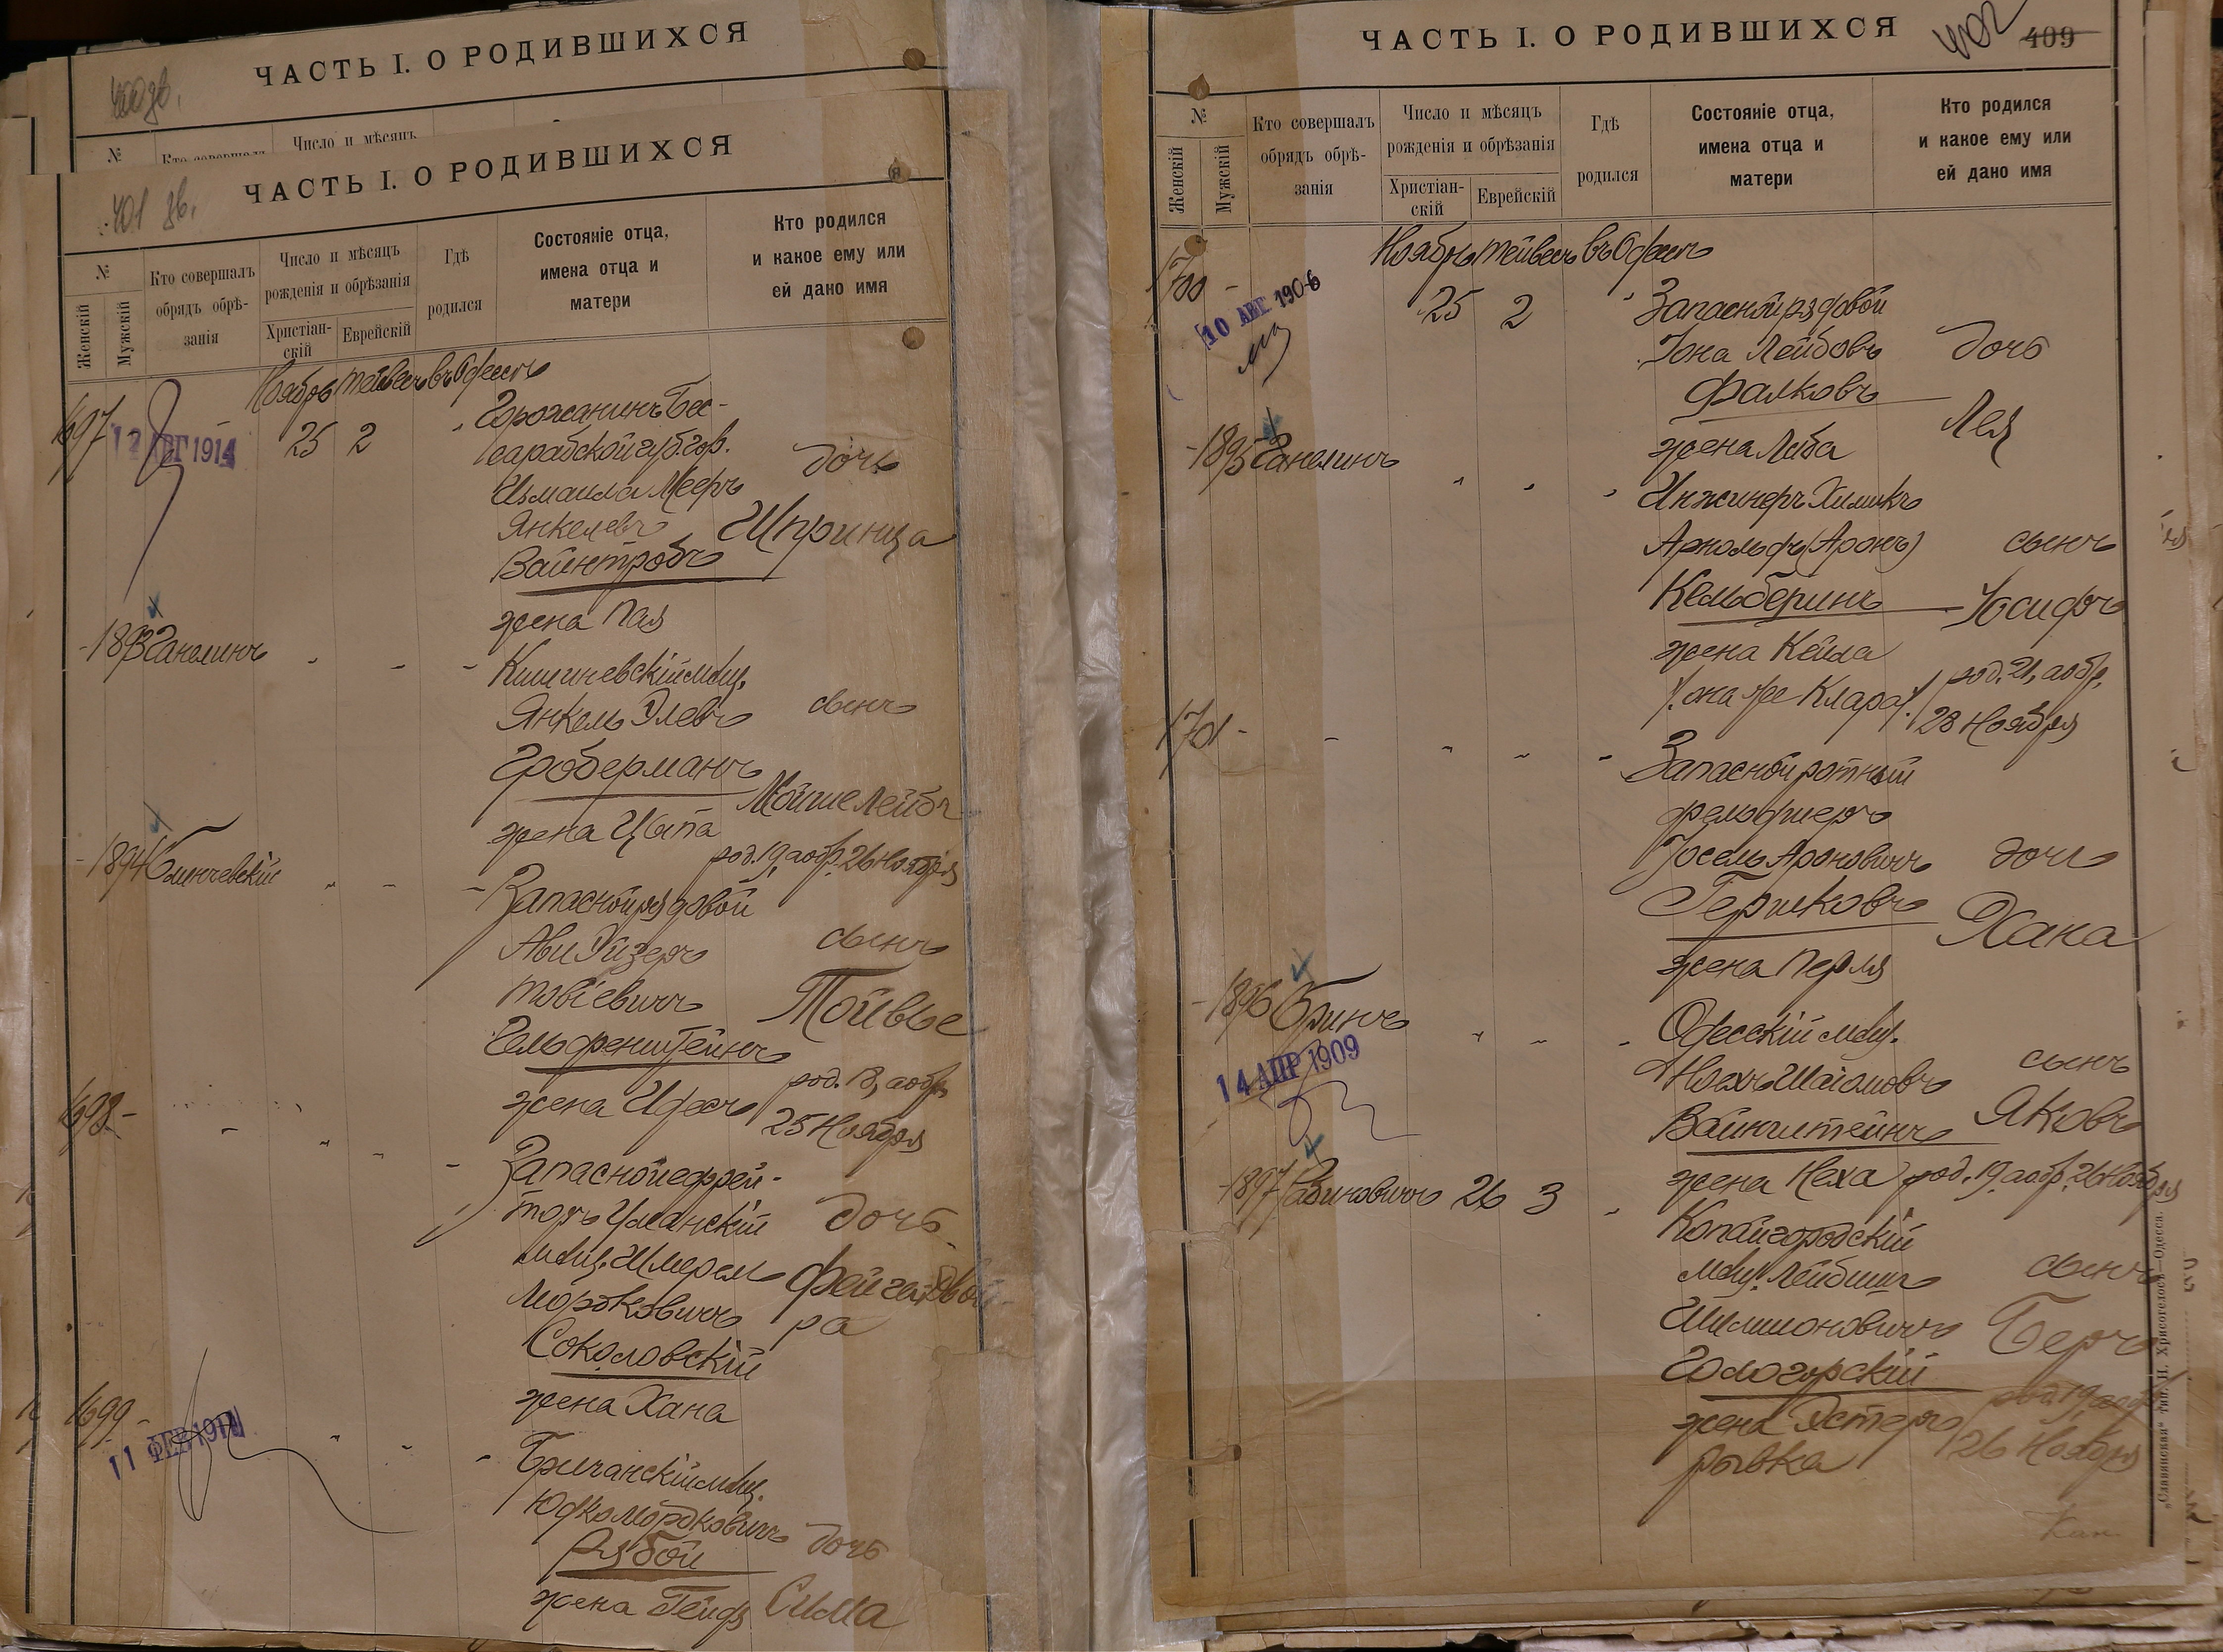 ЧАСТЬ I. О РОДИВШИХСЯ
№
Число и мѣсяцъ
401 зв.
ЧАСТЬ I. О РОДИВШИХСЯ
№
Женскій
Мужскій
Кто совершалъ
обрядъ обрѣ-
занія
Число и мѣсяцъ
рожденія и обрѣзанія
Христіан-
скій
Еврейскій
Гдѣ
родился
Состояніе отца,
имена отца и
матери
Кто родился
и какое ему или
ей дано имя
Ноябрь Тейвесъ въ Одессѣ
1697 -
12 АВГ 1914
25 2 "
Горожанинъ Бес-
сарабской губ. гор.
Измаила Мееръ
Янкелевъ
Вайнтробъ
жена Пая
дочь
Шпринца
- 1893 Ганелинъ " " "
Кишиневскій мѣщ.
Янкель Элевъ
Гроберманъ
жена Цыпа
сынъ
Мойше Лейбъ
род. 19, а обр. 26 Ноября
- 1894 Блинчевскій " " "
Запасной рядовой
Ави Эйзеръ
Товіевичъ
Гельфенштейнъ
жена Идесъ
сынъ
Тойвье
род. 18, а обр.
25 Ноября
1698 - - " " "
Запасной ефрей-
торъ Уманскій
мѣщ. Шмерель
Мордковичъ
Соколовскій
жена Хана
дочь
Фейга Двой-
ра
1699 -
11 ФЕВ 1911
" " "
Бричанскій мѣщ.
Юдко Мордковичъ
Рябой
жена Гейдя
дочь
Сима
ЧАСТЬ I. О РОДИВШИХСЯ
402
409
№
Женскій
Мужскій
Кто совершалъ
обрядъ обрѣ-
занія
Число и мѣсяцъ
рожденія и обрѣзанія
Христіан-
скій
Еврейскій
Гдѣ
родился
Состояніе отца,
имена отца и
матери
Кто родился
и какое ему или
ей дано имя
Ноябрь Тейвесъ въ Одессѣ
1700 -
10 АВГ 1906
25 2 "
Запасной рядовой
Іона Лейбовъ
Фалковъ
жена Либа
дочь
Лея
- 1895 Ганелинъ " " "
Инжинеръ Химикъ
Арнольдъ (Аронъ)
Кельберинъ
жена Кейла
/: она же Клара :/
сынъ
Іосифъ
род. 21, а обр.
28 Ноября
1701 - - " " "
Запасной ротный
фельдшеръ
Іосель Ароновичъ
Гершковъ
жена Перля
дочь
Хана
- 1896 Бринъ " " "
14 АПР 1909
Одесскій мѣщ.
Ноехъ Шаіомовъ
Вайнштейнъ
жена Неха
сынъ
Яковъ
род. 19, а обр. 26 Ноября
- 1897 Рабиновичъ 26 3 "
Копайгородскій
мѣщ. Лейбиш
Шлимоновичъ
Гологорскій
жена Эстеръ
Рывка
сынъ
Беръ
род. 19 а обр.
26 Ноября
„Славянская“ тип. Н. Хрисогелосъ—Одесса.